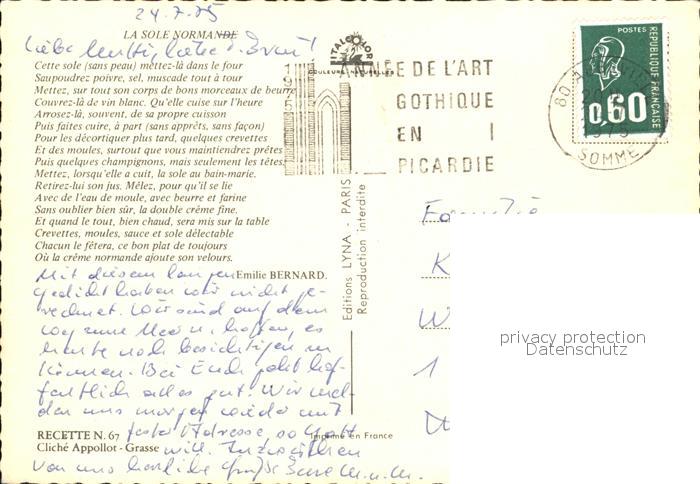 24.7.75
LA SOLE NORMANDE
Liebe
Cette sole (sans peau) mettez-là dans le four
Saupoudrez poivre, sel, muscade tout à tour
Mettez, sur tout son corps de bons morceaux de beurre
Couvrez-là de vin blanc. Qu'elle cuise sur l'heure
Arrosez-là, souvent, de sa propre cuisson
Puis faites cuire, à part (sans apprêts, sans façon)
Pour les décortiquer plus tard, quelques crevettes
Et des moules, surtout que vous maintiendrez prêtes
Puis quelques champignons, mais seulement les têtes,
Mettez, lorsqu'elle a cuit, la sole au bain-marie.
Retirez-lui son jus. Mêlez, pour qu'il se lie
Avec de l'eau de moule, avec beurre et farine
Sans oublier bien sûr, la double crème fine.
Et quand le tout, bien chaud, sera mis sur la table
Crevettes, moules, sauce et sole délectable
Chacun le fêtera, ce bon plat de toujours
Où la crème normande ajoute son velours.
Emilie BERNARD.
Mit diesem langen
Gedicht haben wir nicht ge-
rechnet. Wir sind auf dem
Weg zum Meer u. hoffen, es
heute noch besichtigen zu
können. Bei Euch geht hof-
fentlich alles gut. Wir mel-
den uns morgen wieder mit
fester Adresse, so Gott
will. Inzwischen
von uns herzliche Grüße
RECETTE N. 67
Cliché Appollot - Grasse
Imprimé en France
Editions LYNA - PARIS
Reproduction interdite
ITALCOLOR
COULEURS NATURELLES
1975
DE L'ART
GOTHIQUE
EN
PICARDIE
80
SOMME
POSTES
REPUBLIQUE FRANÇAISE
0,60
Familie
K
W
1
privacy protection
Datenschutz